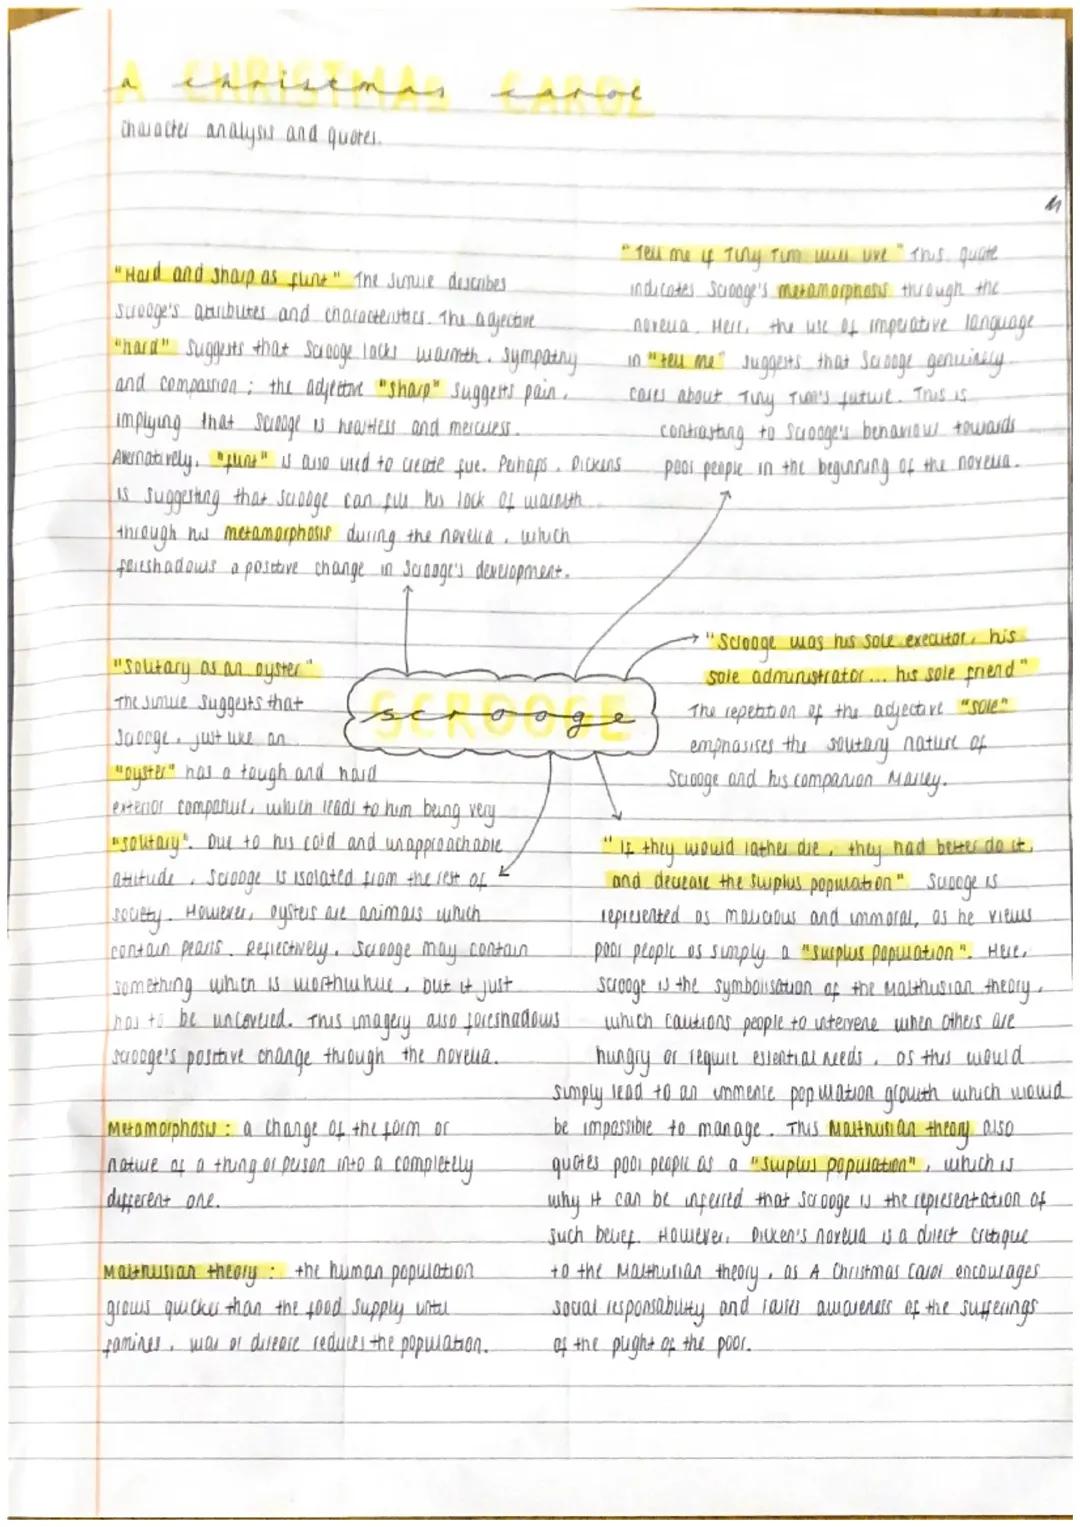 a christmas carol
A CHRISTMAS CAROL
character analysis and quotes.
"Hard and sharp as flint" The simile describes
scrooge's attributes and characteristics. The adjective
"hard" suggests that Scrooge lacks warmth, sympathy
and compassion; the adjective "sharp" suggests pain,
implying that Scrooge is heartless and merciless.
Alternatively, "flint" is also used to create fire. Perhaps, Dickens
is suggesting that scrooge can fill his lack of warmth
through his metamorphosis during the novella, which
foreshadows a positive change in Scrooge's development.
"Tell me if Tiny Tim will live" This quote
indicates Scrooge's metamorphosis through the
novella. Here, the use of imperative language
in "tell me" suggests that Scrooge genuinely
cares about Tiny Tim's future. This is
contrasting to Scrooge's behaviour towards
poor people in the beginning of the novella.
SCROOGE
scrooge
"Scrooge was his sole executor, his
sole administrator... his sole friend"
The repetition of the adjective "sole"
emphasises the solitary nature of
Scrooge and his companion Marley.
"Solitary as an oyster"
The simile suggests that
Scrooge, just like an
"oyster" has a tough and hard
exterior composure, which leads to him being very
"solitary". Due to his cold and unapproachable
attitude, Scrooge is isolated from the rest of
society. However, oysters are animals which
contain pearls. Reflectively, Scrooge may contain
something which is worthwhile, but it just
has to be uncovered. This imagery also foreshadows
scrooge's positive change through the novella.
"If they would rather die, they had better do it,
and decrease the surplus population" Scrooge is
represented as malicious and immoral, as he views
poor people as simply a "surplus population". Here,
Scrooge is the symbolisation of the Malthusian theory,
which cautions people to intervene when others are
hungry or require essential needs, as this would
simply lead to an immense population growth which would
be impossible to manage. This Malthusian theory also
quotes poor people as a "surplus population", which is
why it can be inferred that Scrooge is the representation of
such belief. However, Dicken's novella is a direct critique
to the Malthusian theory, as A Christmas Carol encourages
social responsability and raises awareness of the sufferings
of the plight of the poor.
Metamorphosis: a change of the form or
nature of a thing or person into a completely
different one.
Malthusian theory: the human population
grows quicker than the food supply until
famines, war or disease reduces the population.